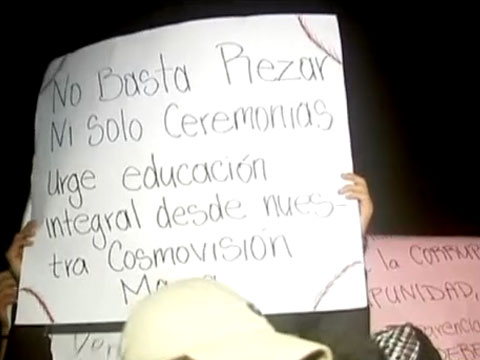 No Basta Rezar
Ni Solo Ceremonias
Urge educación
integral desde nues-
tra Cosmovisión
la CORRUP
PUNIDAD,